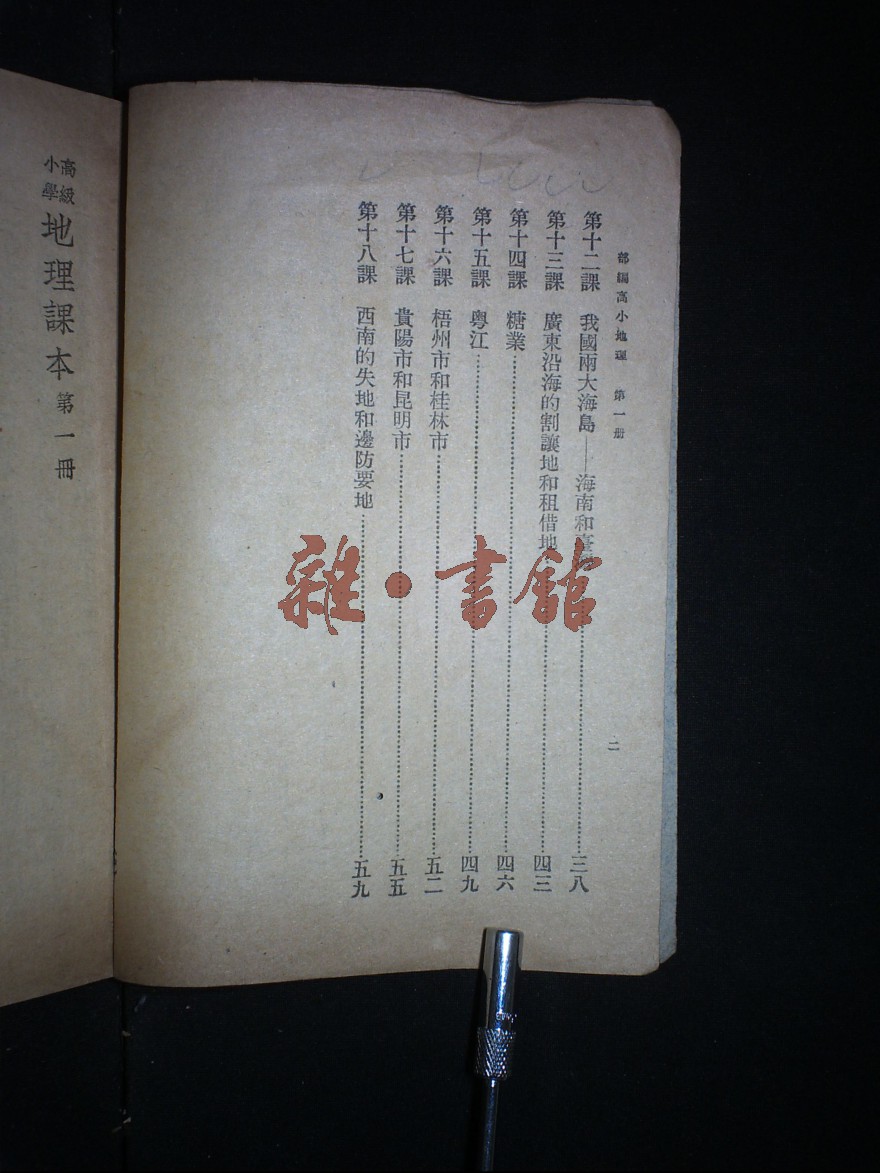 部編高小地理　第一册
第十二課　我國兩大海島——海南和臺灣……三八
第十三課　廣東沿海的割讓地和租借地……四三
第十四課　糖業……四六
第十五課　粵江……四九
第十六課　梧州市和桂林市……五二
第十七課　貴陽市和昆明市……五五
第十八課　西南的失地和邊防要地……五九
二
高級小學 地理課本 第一冊
雜·書館